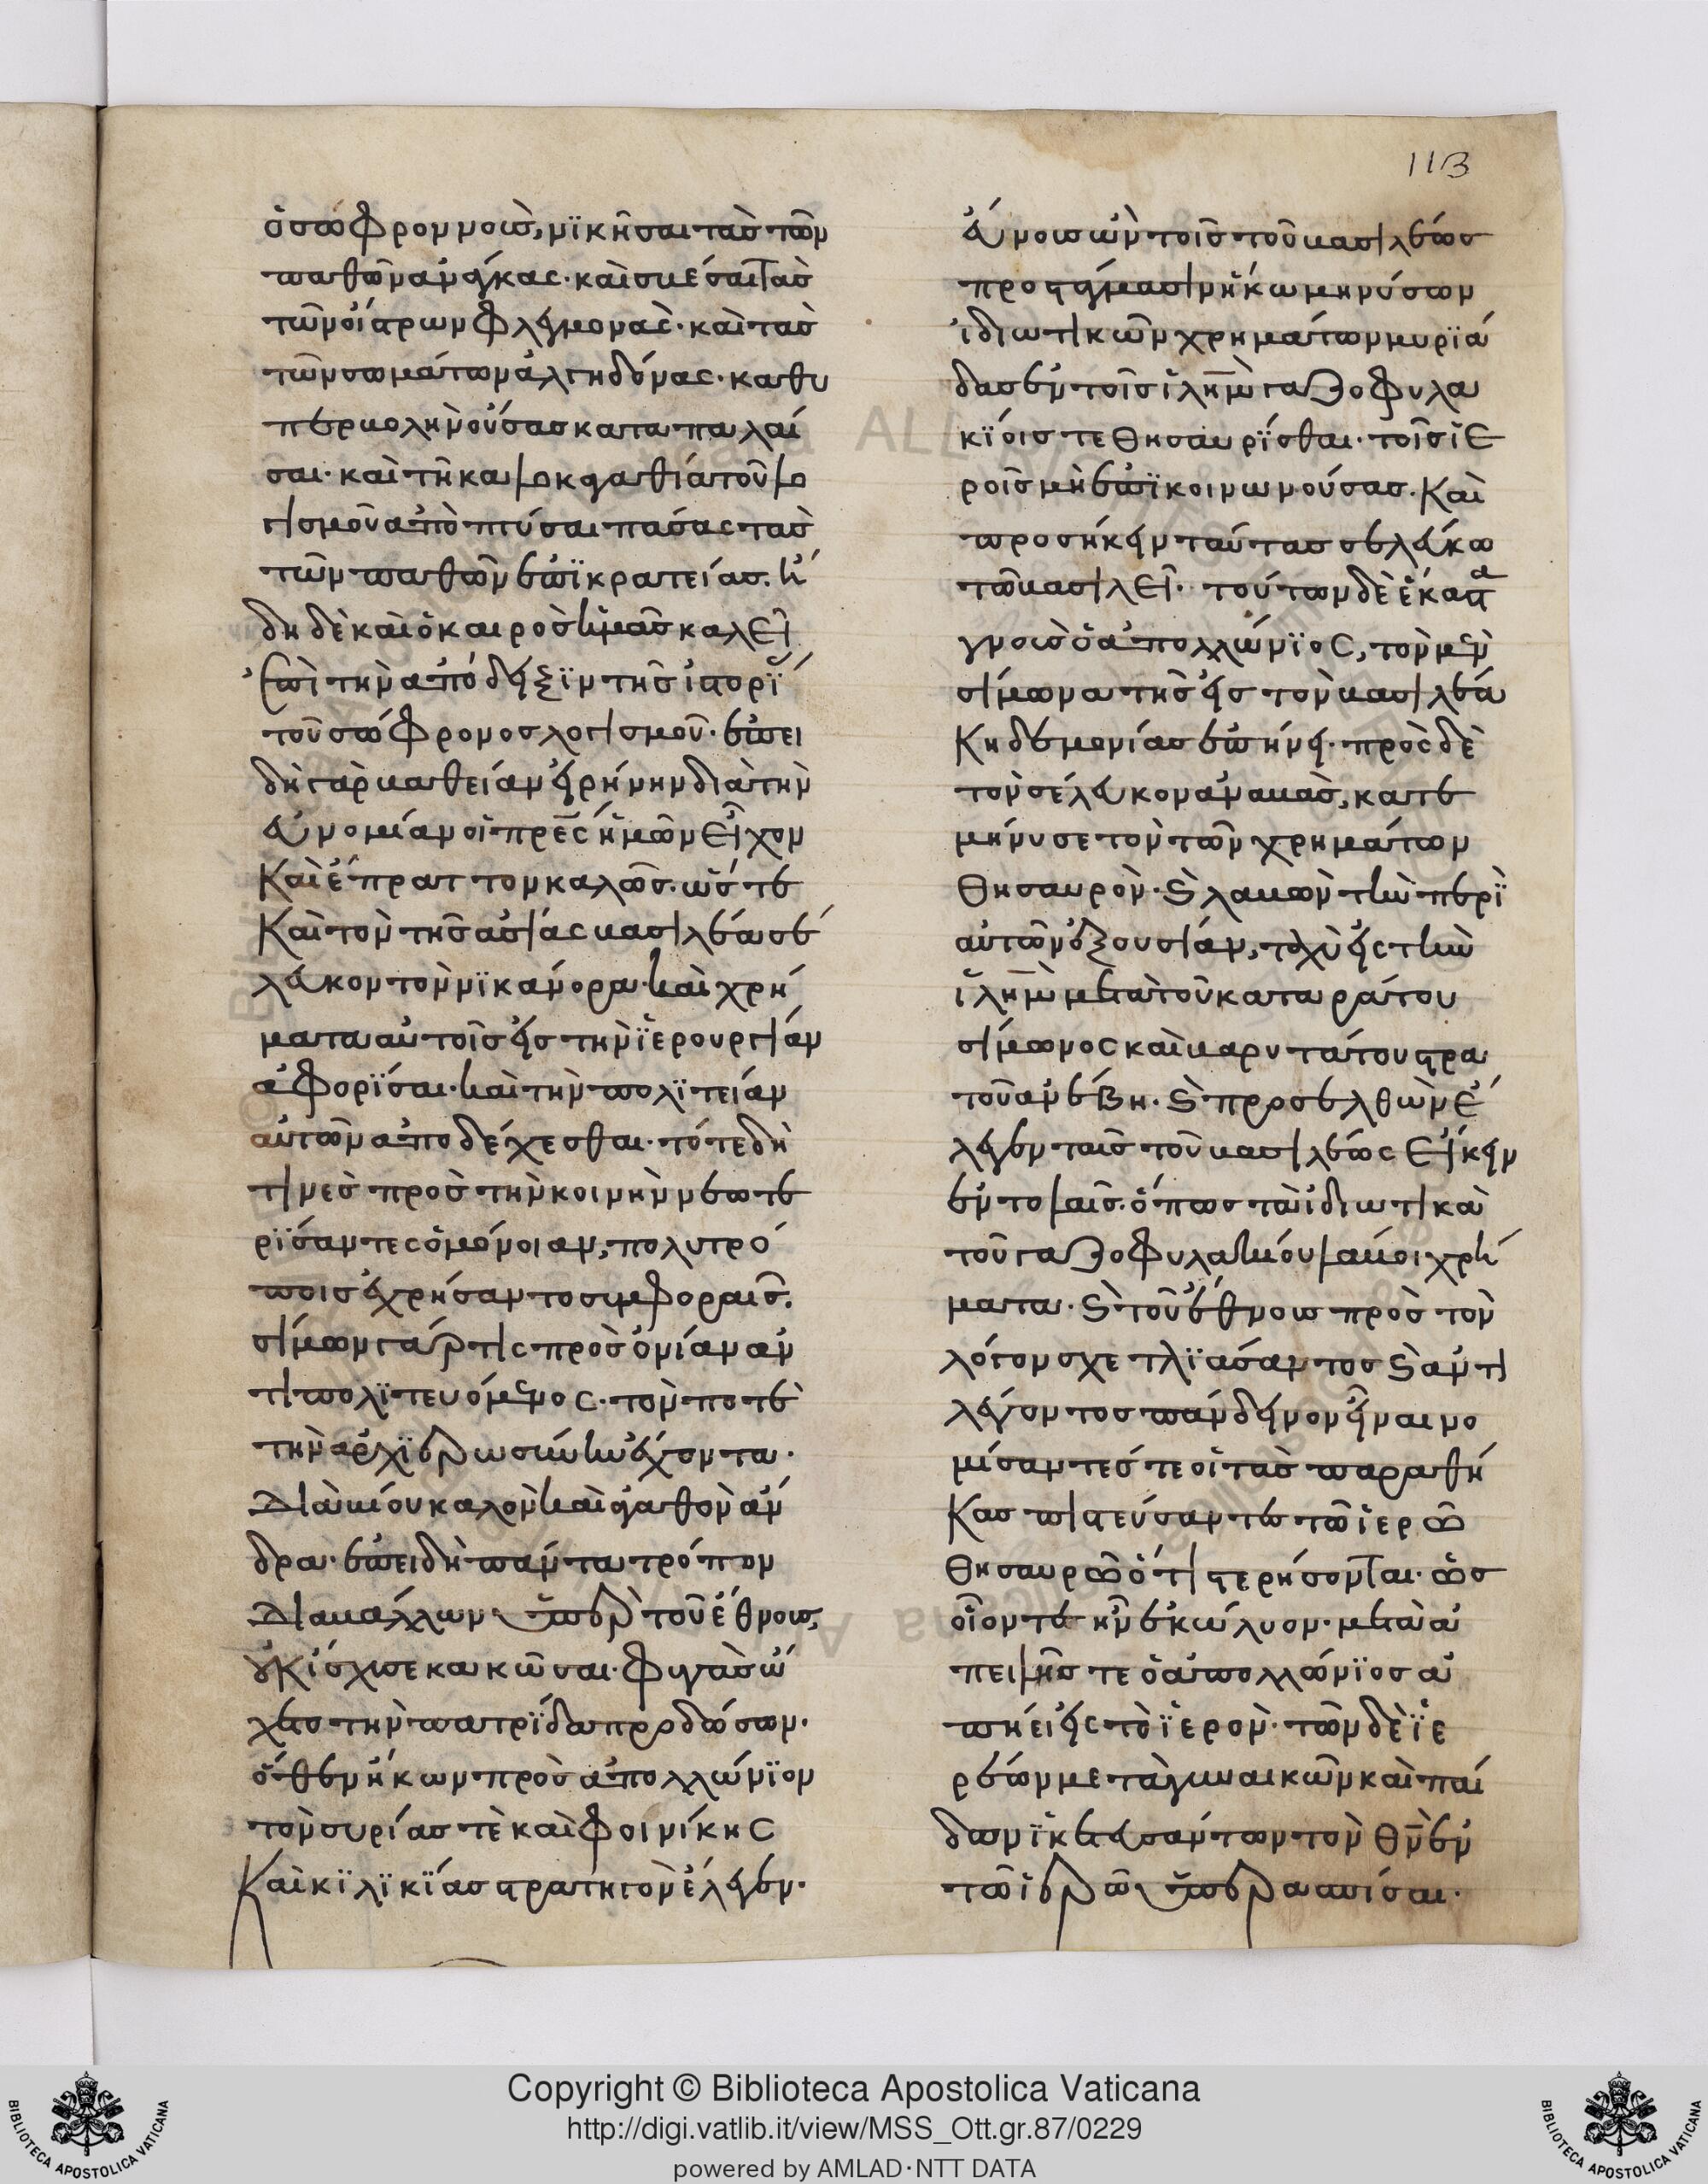 ὁ σώφρον νοῦς, νϊκῆσαι τὰς τῶν
παθῶν ἀνάγκας· καὶ σβέσαι τὰς
τῶν οἴστρων φλεγμονὰς· καὶ τὰς
τῶν σωμάτων ἀλγηδόνας· καθυ
περβολὴν οὔσας καταπαλαί
σαι· καὶ τῆ καλοκαγαθία τοῦ λο
γισμοῦ ἀποπτύσαι πάσας τὰς
τῶν παθῶν ἐπϊκρατείας· ἤ
δη δὲ καὶ ὁ καιρὸς ἡμᾶς καλεῖ
ἐπὶ τὴν ἀπόδειξϊν τῆς ἱστορϊ
τοῦ σώφρονος λογισμοῦ· ἐπει
δὴ γὰρ βαθείαν εἰρήνην διὰ τὴν
εὐνομίαν οἱ πρ̅ες ἡμῶν εἶχον
Καὶ ἔπραττον καλῶς· ὥστε
Καὶ τὸν τῆς ἀσίας βασιλέα σέ
λευκον τὸν νϊκάνορα· καὶ χρή
ματα αὐτοῖς εἰς τὴν ϊερουργίαν
ἀφορϊσαι· καὶ τὴν πολϊτείαν
αὐτῶν ἀποδέχεσθαι· τότε δὴ
τινὲς πρὸς τὴν κοινὴν νεωτε
ρϊσαντες ὁμόνοιαν, πολυτρό
ποις ἐχρήσαντο συμφοραῖς·
σίμων γάρ τις πρὸς ὀνίαν ἀν
τιπολϊτευόμενος· τὸν ποτὲ
τὴν ἀρχϊερωσύνην ἔχοντα·
Διὰ βίου καλὸν καὶ ἀγαθὸν ἄν
δρα· ἐπειδὴ πάντα τρόπον
Διαβάλλων ὑπὲρ τοῦ ἔθνους,
οὐκ ἴσχυσε κακῶσαι· φυγὰς ᾤ
χετο τὴν πατρϊδα προδώσων·
ὅθεν ἥκων πρὸς ἀπολλώνϊον
τὸν συρίας τὲ καὶ φοινίκης
Καὶ κϊλϊκϊας στρατηγὸν ἔλεγεν·
113
εὔνους ὢν τοῖς τοῦ βασιλέως
προστάγμασιν ἥκω μηνύσων
ἰδιωτικῶν χρημάτων μυρϊά
δας ἐν τοῖς ἱ̅λη̅μ̅ γαζοφυλα
κϊοις τεθησαυρϊσθαι· τοῖς ἱε
ροῖς μὴ ἐπϊκοινωνούσας· Καὶ
προσήκειν ταύτας σελεύκω
τῶ βασιλεῖ· τούτων δὲ ἕκαστα
γνοὺς ὁ ἀπολλώνϊος, τὸν μὲν
σίμωνα τῆς εἰς τὸν βασιλέα
Κηδεμονίας ἐπήνει· πρὸς δὲ
τὸν σέλευκον ἀναβὰς, κατε
μήνυσε τὸν τῶν χρημάτων
Θησαυρὸν· ϗ λαβὼν τὴν περϊ
αὐτῶν ἐξουσίαν, ταχὺ εἰς τὴν
ἱ̅λη̅μ̅ μετὰ τοῦ καταράτου
σίμωνος καὶ βαρυτάτου στρα
τοῦ ἀνέβη· ϗ προσελθὼν ἔ
λεγεν ταῖς τοῦ βασιλέως εἴκειν
ἐντολαῖς· ὅπως τὰ ἰδιωτικὰ
τοῦ γαζοφυλακίου λάβοι χρή
ματα· ϗ τοῦ ἔθνους πρὸς τὸν
λόγον σχετλϊάσαντος ϗ ἀντι
λέγοντος πάνδεινον εἶναι νο
μίσαντές τε οἱ τὰς παραθή
Κας πιστεύσαντες τῶ ἱερῶ
Θησαυρῶ ὅτι στερήσονται· ὡς
οἷόν τε ἦν ἐκώλυον· μετὰ ἀ
πειλῆς τε ὁ ἀπολλώνϊος ἀ
πήει εἰς τὸ ϊερὸν· τῶν δὲ ϊε
ρέων μετὰ γυναικῶν καὶ παί
δων ϊκετευσάντων τὸν θ̅ν̅ ἐν
τῶ ἱερῶ ὑπερασπίσαι·
ALL
BIBLIOTECA APOSTOLICA VATICANA
Copyright © Biblioteca Apostolica Vaticana
http://digi.vatlib.it/view/MSS_Ott.gr.87/0229
powered by AMLAD·NTT DATA
BIBLIOTECA APOSTOLICA VATICANA